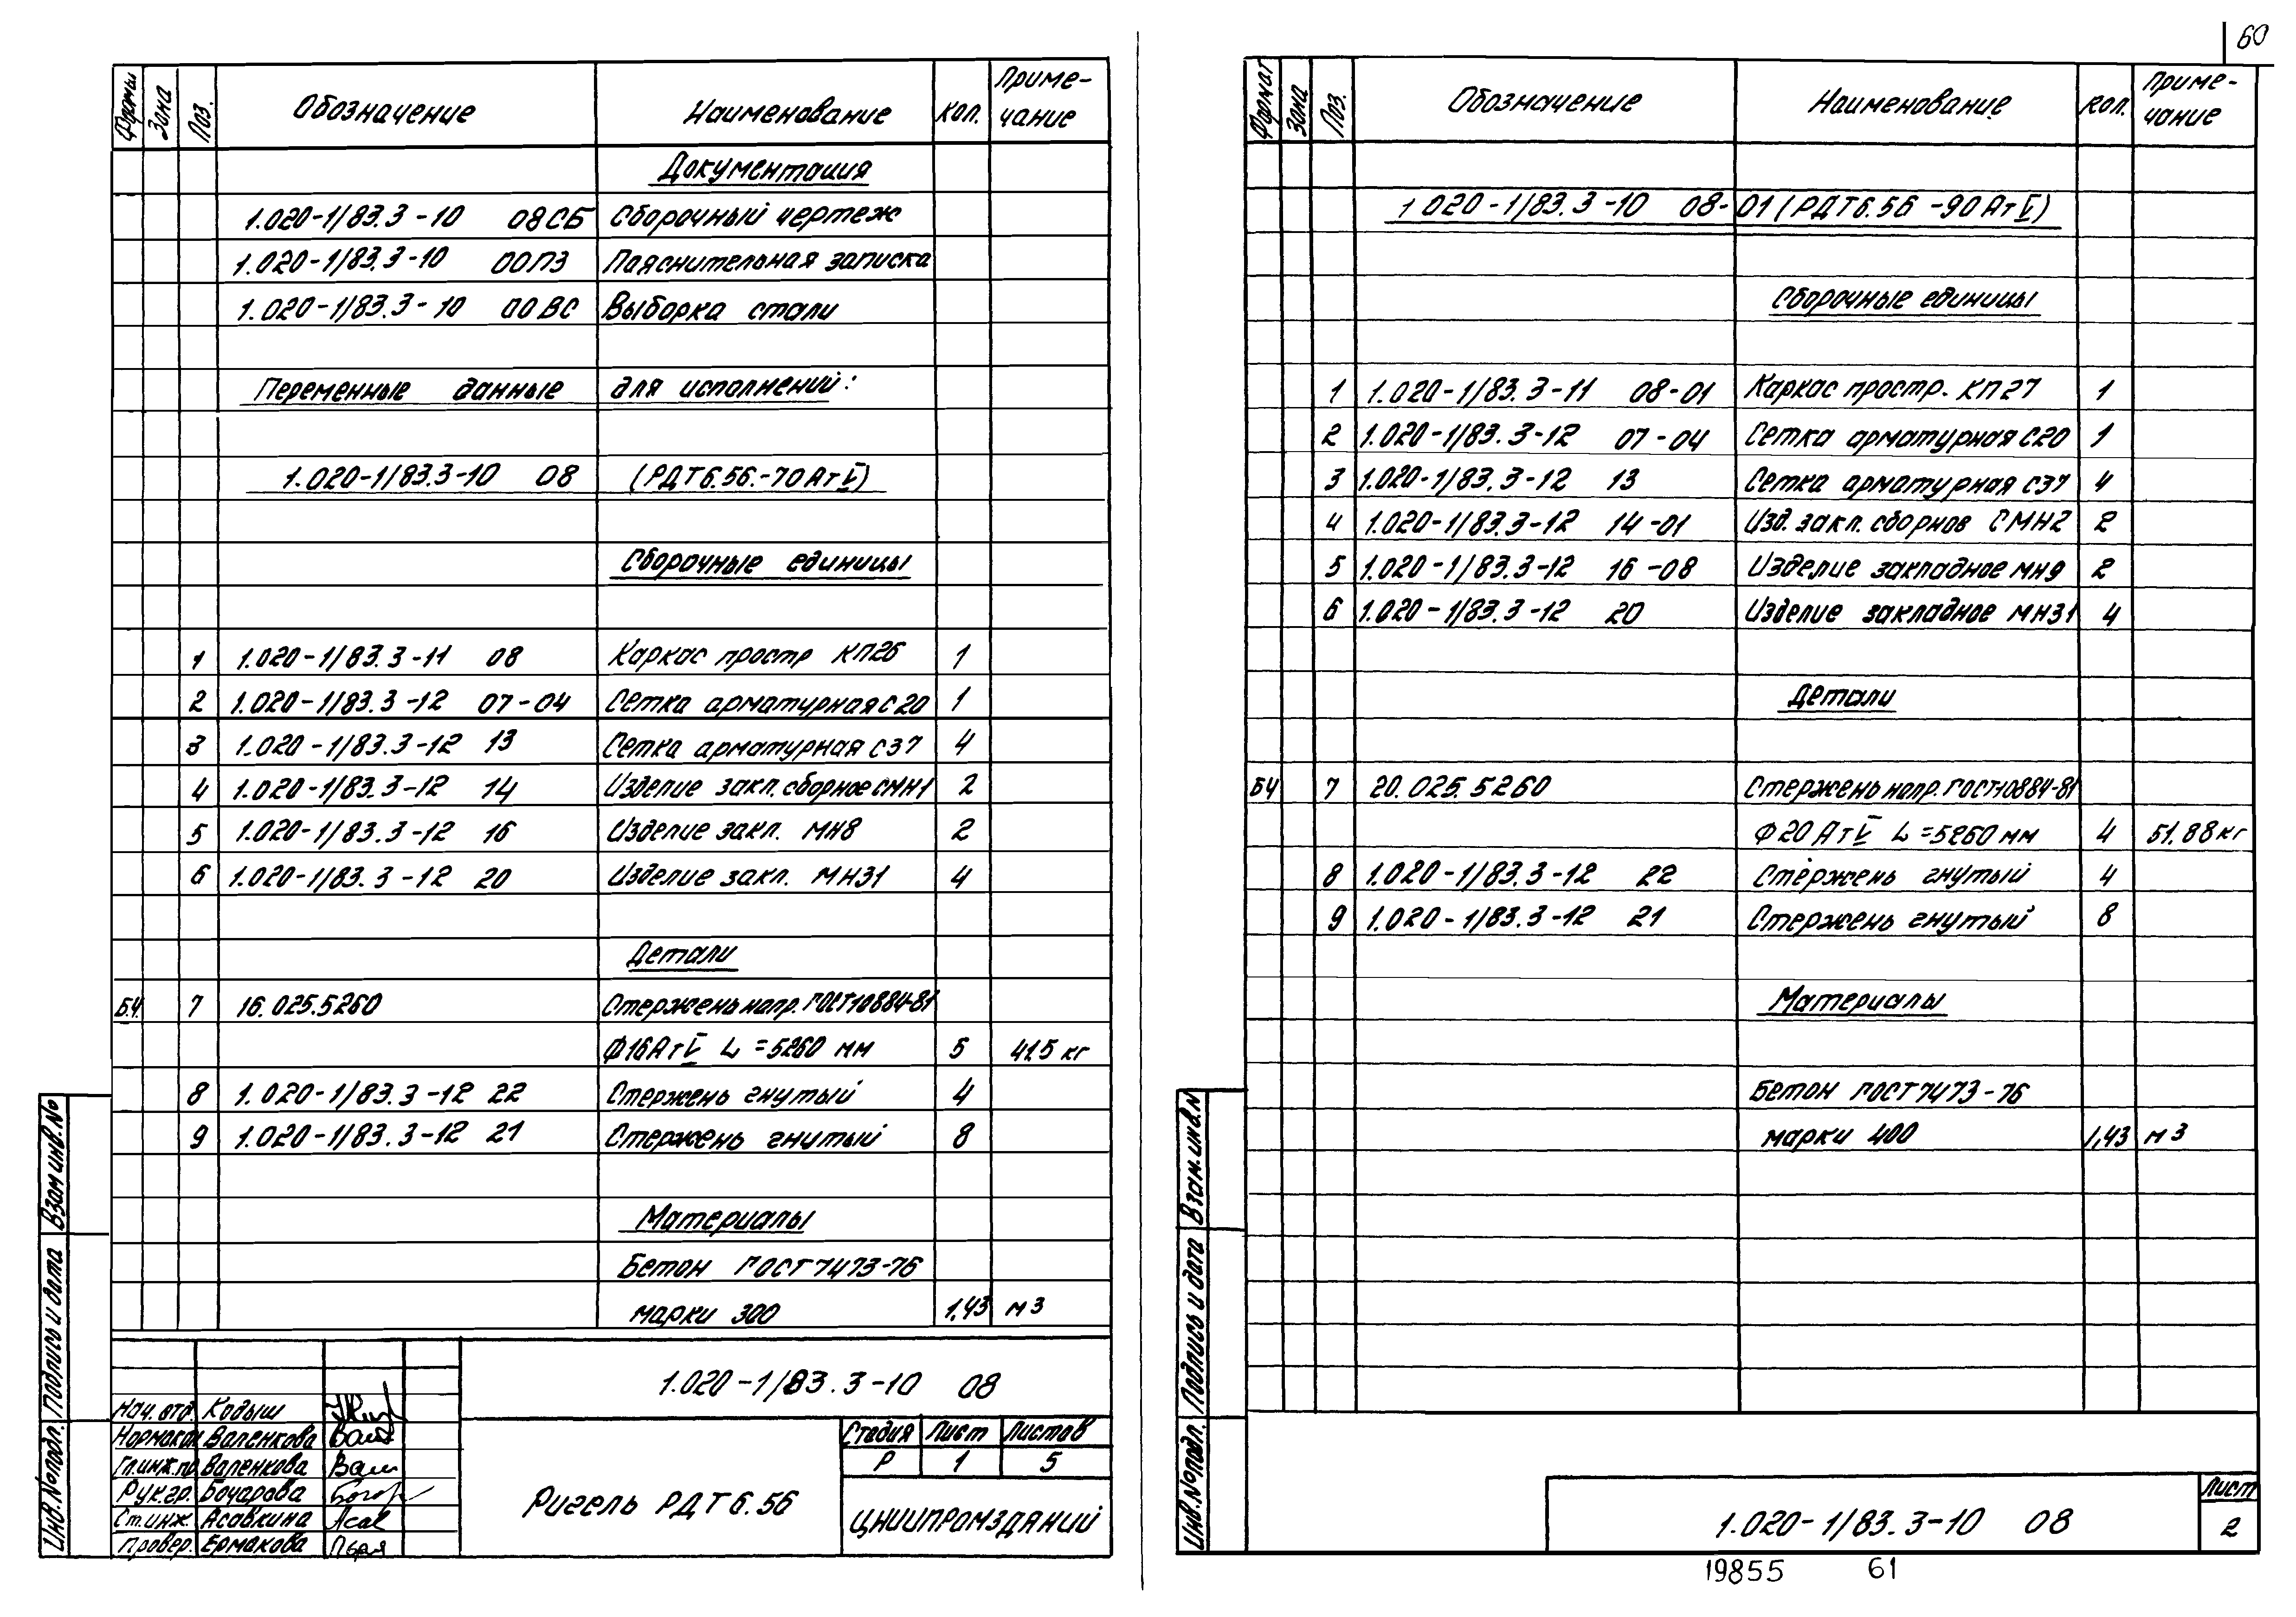 60
Формат Зона Поз. Обозначение Наименование Кол. Приме-
чание
Документация
1.020-1/83.3-10 08СБ Сборочный чертеж
1.020-1/83.3-10 00ПЗ Пояснительная записка
1.020-1/83.3-10 00ВС Выборка стали
Переменные данные для исполнений:
1.020-1/83.3-10 08 (РДТ6.56.-70АтV)
Сборочные единицы
1 1.020-1/83.3-11 08 Каркас простр КП26 1
2 1.020-1/83.3-12 07-04 Сетка арматурная С20 1
3 1.020-1/83.3-12 13 Сетка арматурная С37 4
4 1.020-1/83.3-12 14 Изделие закл. сборное СМН1 2
5 1.020-1/83.3-12 16 Изделие закл. МН8 2
6 1.020-1/83.3-12 20 Изделие закл. МН31 4
Детали
Б.Ч. 7 16.025.5260 Стержень напр. ГОСТ10884-81
Ф16АтV L=5260 мм 5 41.5 кг
8 1.020-1/83.3-12 22 Стержень гнутый 4
9 1.020-1/83.3-12 21 Стержень гнутый 8
Материалы
Бетон ГОСТ7473-76
марки 300 1,43 м3
1.020-1/83.3-10 08
Нач. отд. Кодыш
Нормокон Валенкова
Гл.инж.пр Валенкова
Рук.гр. Бочарова
Ст.инж. Асавкина
Провер. Ермакова
Ригель РДТ6.56
Стадия Лист Листов
Р 1 5
ЦНИИПРОМЗДАНИЙ
Инв.№подл. Подпись и дата Взам инв.№
Формат Зона Поз. Обозначение Наименование Кол. Приме-
чание
1.020-1/83.3-10 08-01(РДТ6.56-90АтV)
Сборочные единицы
1 1.020-1/83.3-11 08-01 Каркас простр. КП27 1
2 1.020-1/83.3-12 07-04 Сетка арматурная С20 1
3 1.020-1/83.3-12 13 Сетка арматурная С37 4
4 1.020-1/83.3-12 14-01 Изд. закл. сборнов СМН2 2
5 1.020-1/83.3-12 16-08 Изделие закладное МН9 2
6 1.020-1/83.3-12 20 Изделие закладное МН31 4
Детали
БЧ 7 20.025.5260 Стержень напр. ГОСТ10884-81
Ф20АтV L=5260 мм 4 51.88 кг
8 1.020-1/83.3-12 22 Стержень гнутый 4
9 1.020-1/83.3-12 21 Стержень гнутый 8
Материалы
Бетон ГОСТ7473-76
марки 400 1,43 м3
Инв.№подл. Подпись и дата Взам.инв.№
1.020-1/83.3-10 08
Лист
2
19855 61